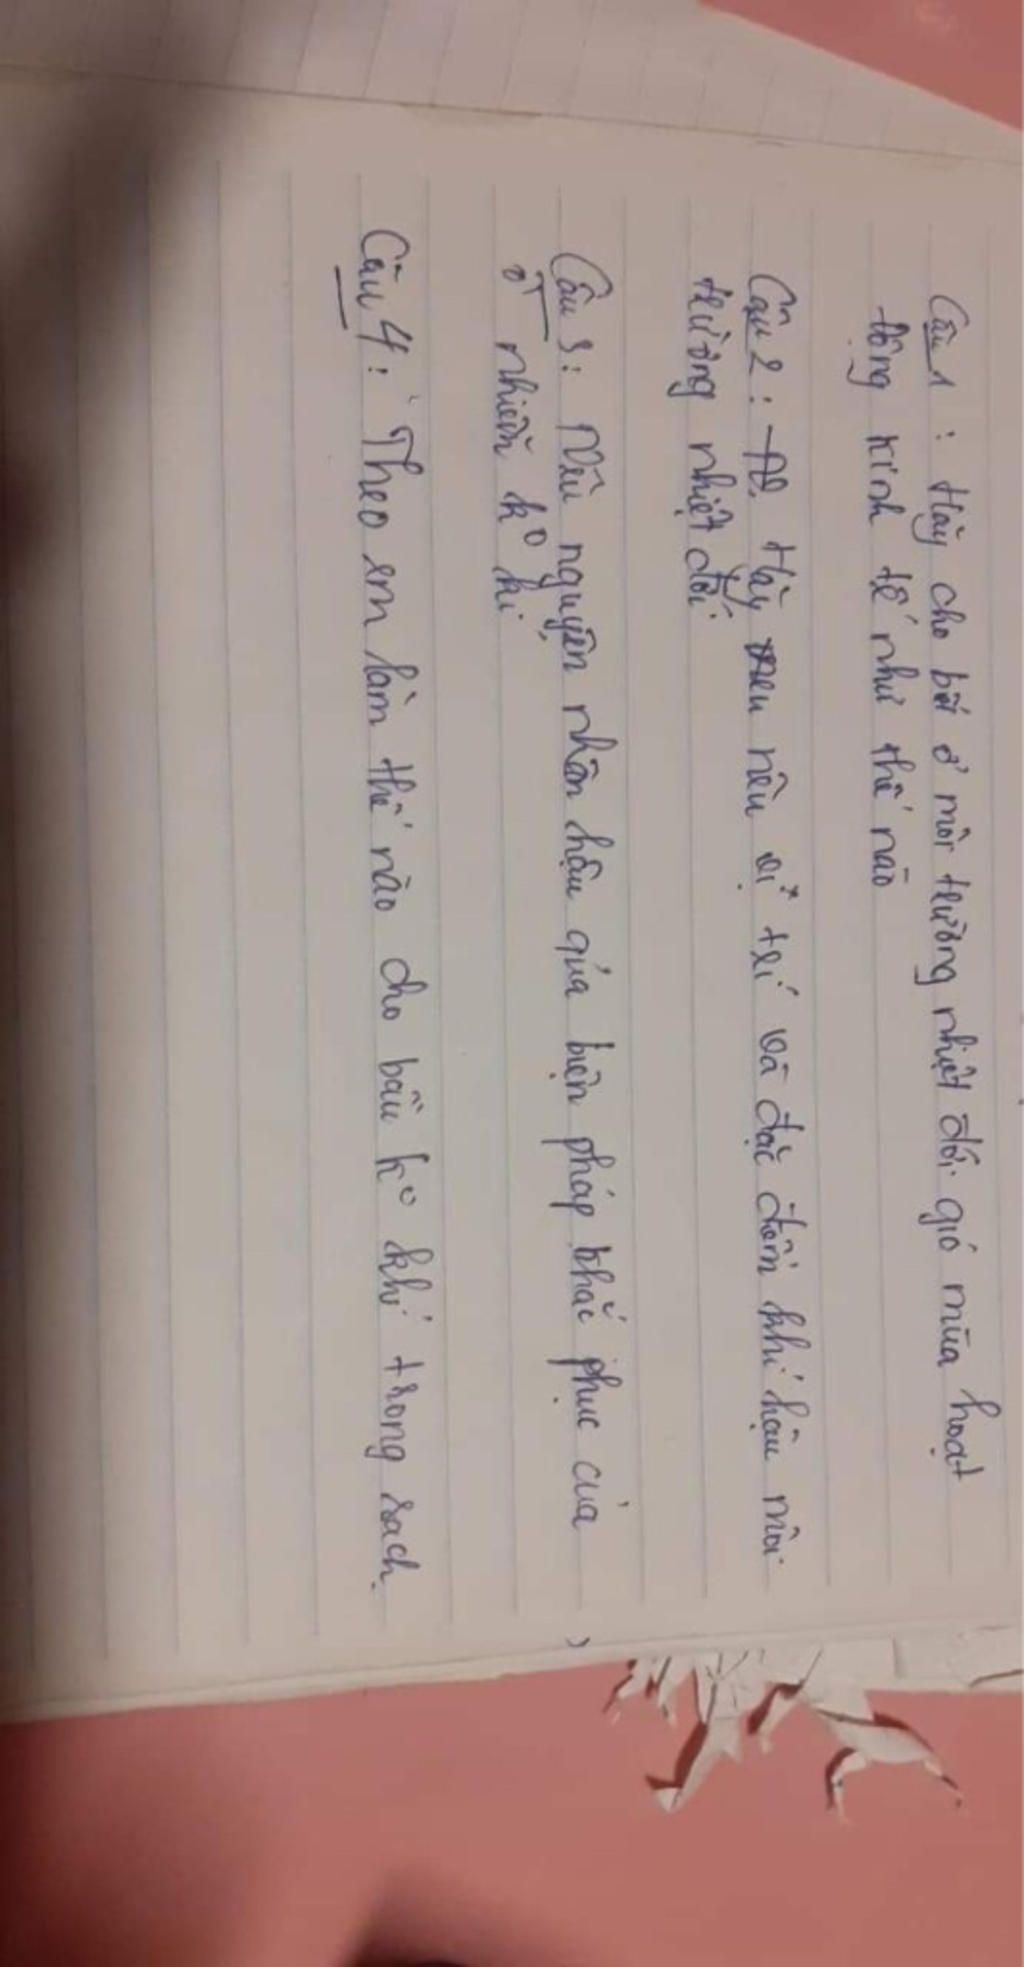 Câu 1 : Hãy cho biết ở môi trường nhiệt đới gió mùa hoạt
động kinh tế như thế nào
Câu 2 : Hãy nêu vị trí và đặc điểm khí hậu môi
trường nhiệt đới
Câu 3 : Nêu nguyên nhân hậu quả biện pháp khắc phục của
ô nhiễm kº khí
Câu 4 : Theo em làm thế nào cho bầu kº khí trong sạch